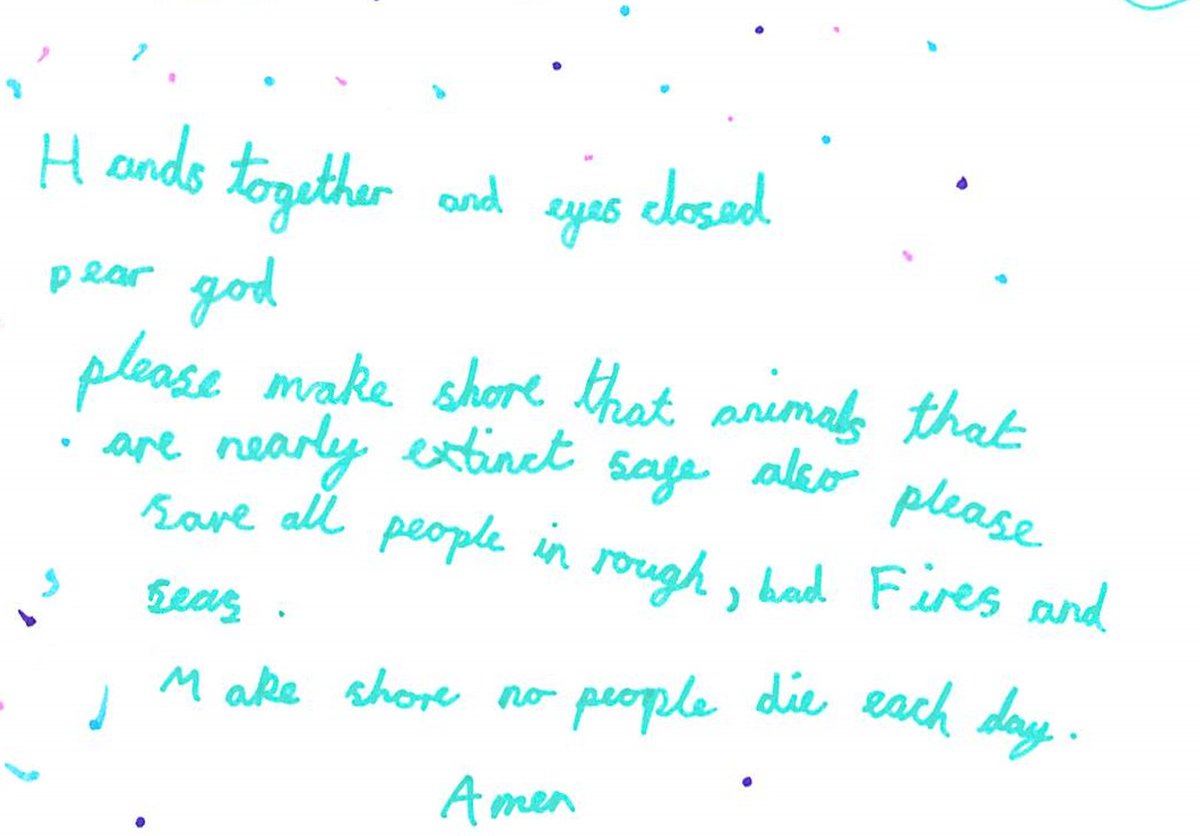 Hands together and eyes closed
Dear god
please make shore that animals that
are nearly extinct sage also please
save all people in rough, bad Fires and
seas.
Make shore no people die each day.
Amen